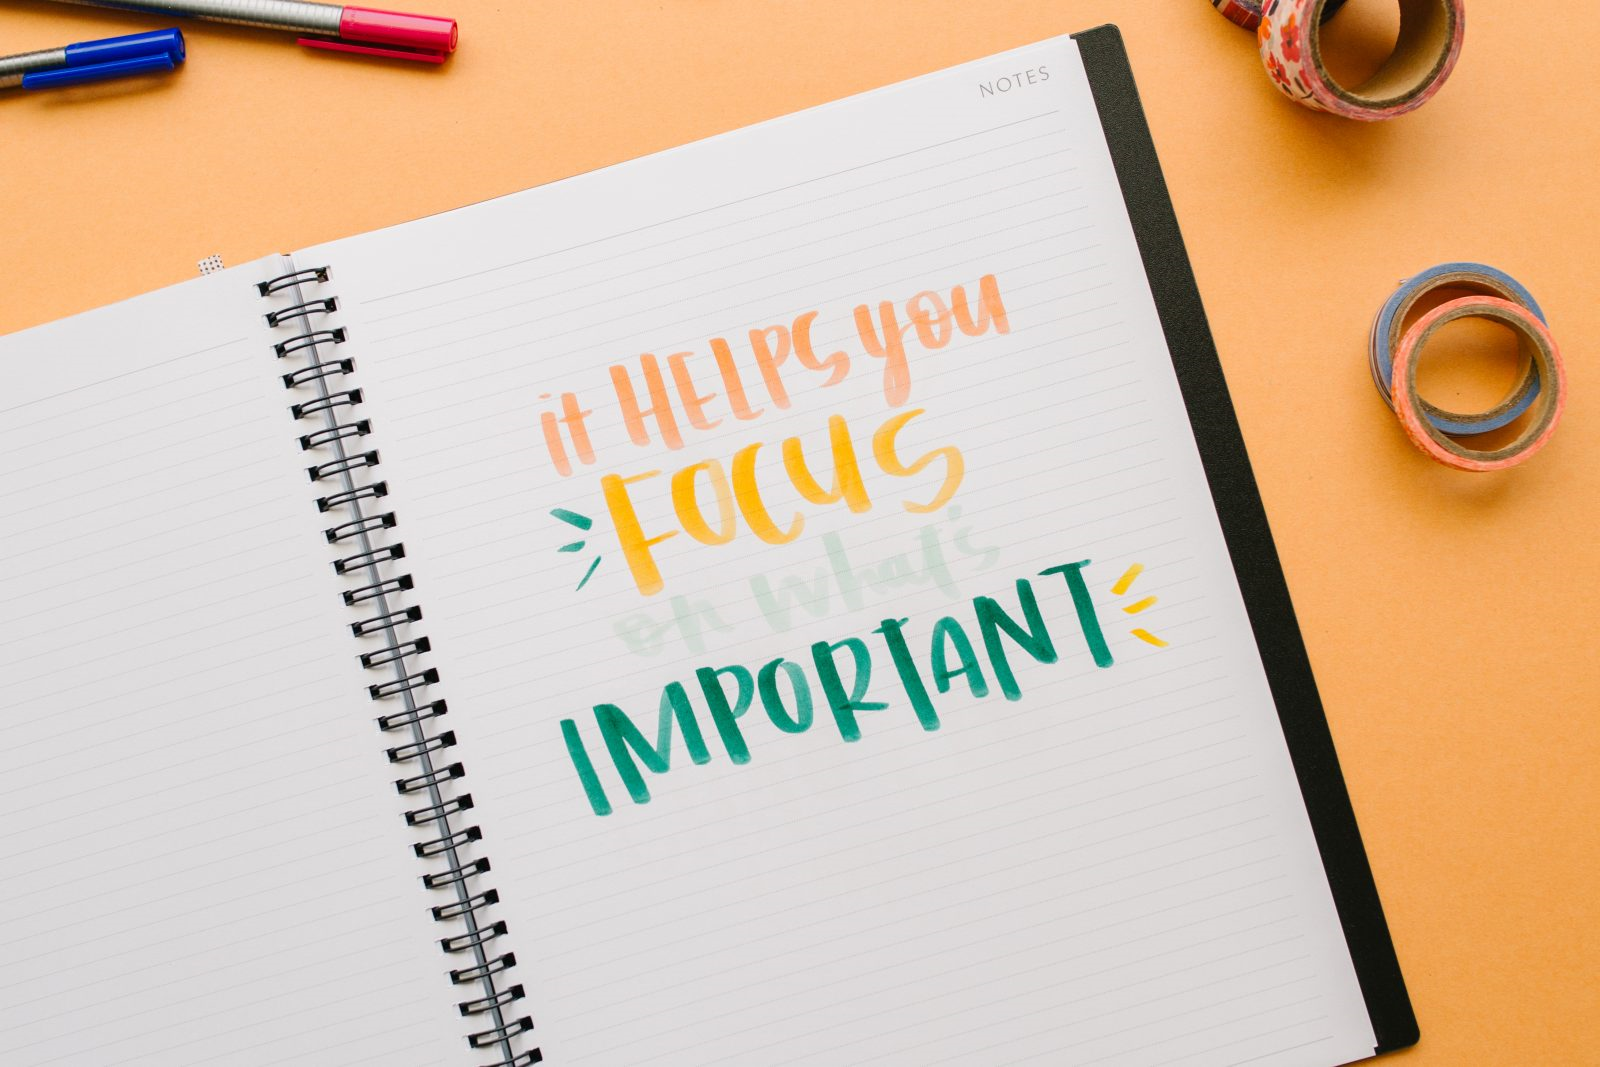 NOTES
it HELPS you
FOCUS
on what's
IMPORTANT